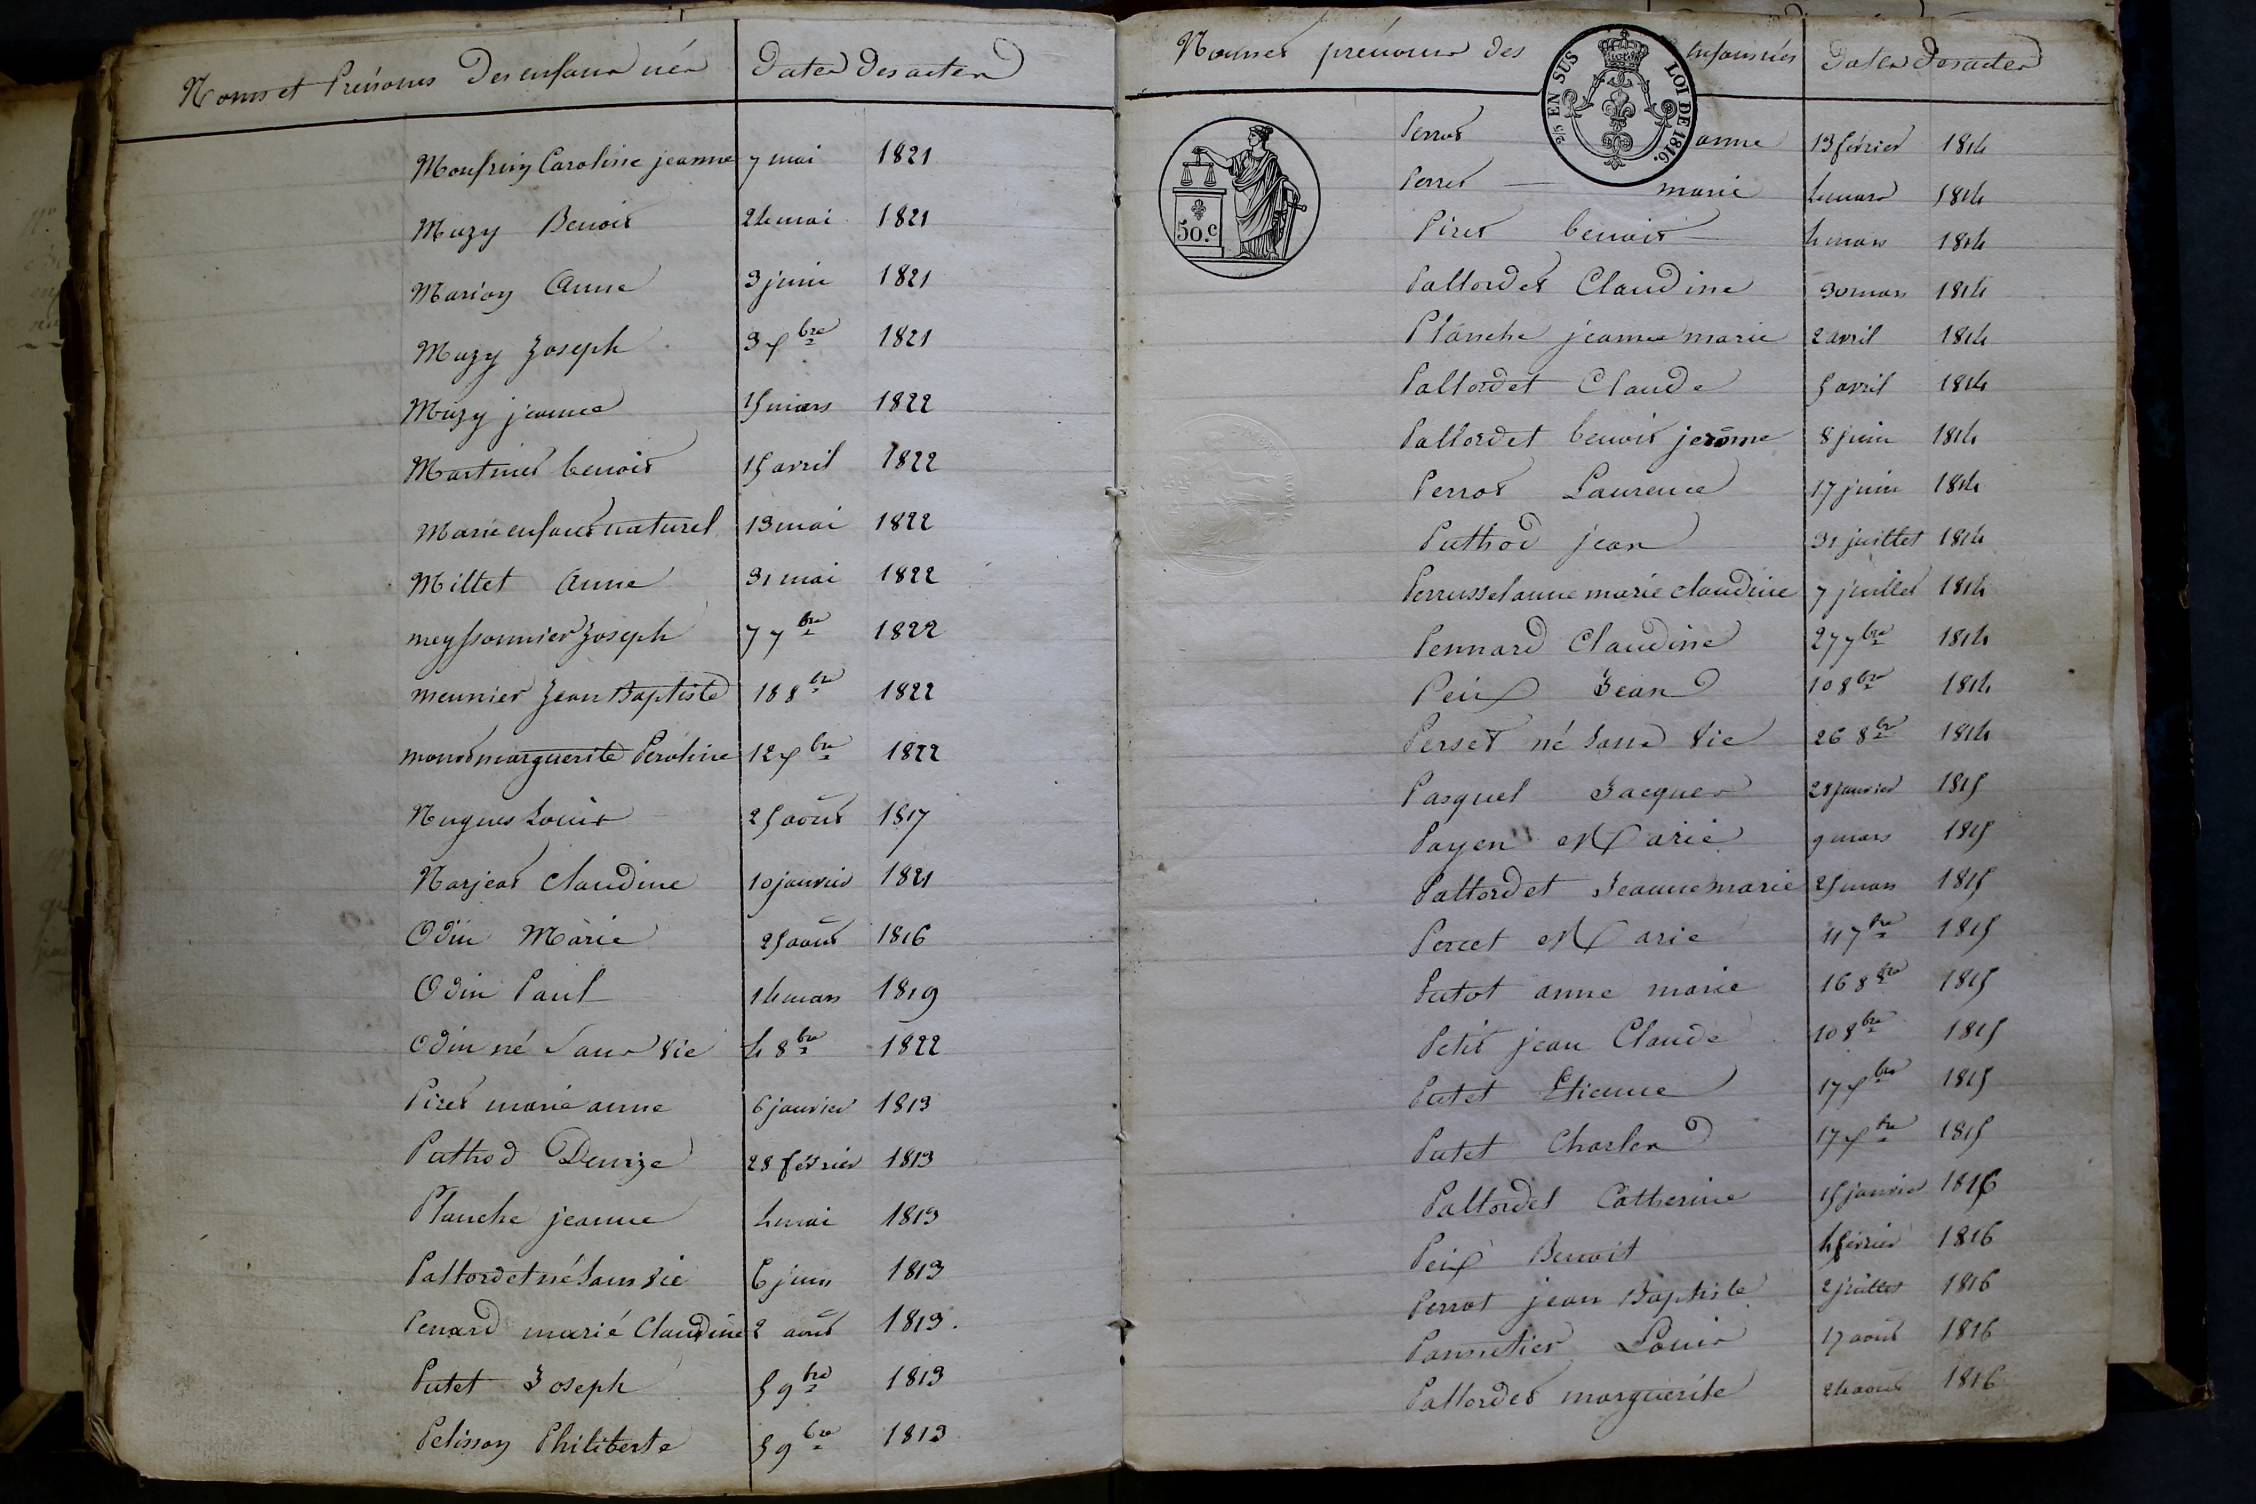 Noms et Prénoms Des enfans nés Dates Des actes
Monfrin Caroline jeanne 7 mai 1821
Muzy Benoit 24 mai 1821
Marion Anne 3 juin 1821
Muzy Joseph 3 Xbre 1821
Muzy jeanne 15 mars 1822
Martinet benoit 15 avril 1822
Marie enfant naturel 13 mai 1822
Millet Anne 31 mai 1822
meyssonnier Joseph 7 7bre 1822
meunier Jean Baptiste 18 8bre 1822
monod marguerite Peroline 12 Xbre 1822
Nugues Louis 25 août 1817
Narjeot Claudine 10 janvier 1821
Odin Marie 25 août 1816
Odin Paul 14 mars 1819
Odin né Sans Vie 4 8bre 1822
Piret marie anne 6 janvier 1813
Puthod Denize 28 février 1813
Planche jeanne 4 mai 1813
Pallordet né Sans Vie 6 juin 1813
Penard marie Claudine 2 août 1813.
Putet Joseph 5 9bre 1813
Pelisson Philiberte 5 9bre 1813
Noms et prénoms des enfans nés Dates Des actes
EN SUS LOI DE 1816.
50.c
Perrot anne 13 février 1814
Perret — marie 4 mars 1814
Piret benoit 4 mars 1814
Pallordet Claudine 30 mars 1814
Planche jeanne marie 2 avril 1814
Pallordet Claude 5 avril 1814
Pallordet benoit jerôme 8 juin 1814
Perrot Laurence 17 juin 1814
Puthod jean 31 juillet 1814
Perrussel anne marie claudine 7 juillet 1814
Pennard Claudine 27 7bre 1814
Peix Jean 10 8bre 1814
Perset né Sans Vie 26 8bre 1814
Pasquet Jacques 28 janvier 1815
Payen Marie 9 mars 1815
Pallordet Jeanne marie 25 mars 1815
Percet Marie 11 7bre 1815
Putot anne marie 16 8bre 1815
Petit jean Claude 10 8bre 1815
Putet Etienne 17 Xbre 1815
Putet Charles 17 Xbre 1815
Pallordet Catherine 15 janvier 1816
Peix Benoit 4 février 1816
Perrot jean Baptiste 2 juillet 1816
Pannetier Louis 17 août 1816
Pallordet marguerite 24 août 1816